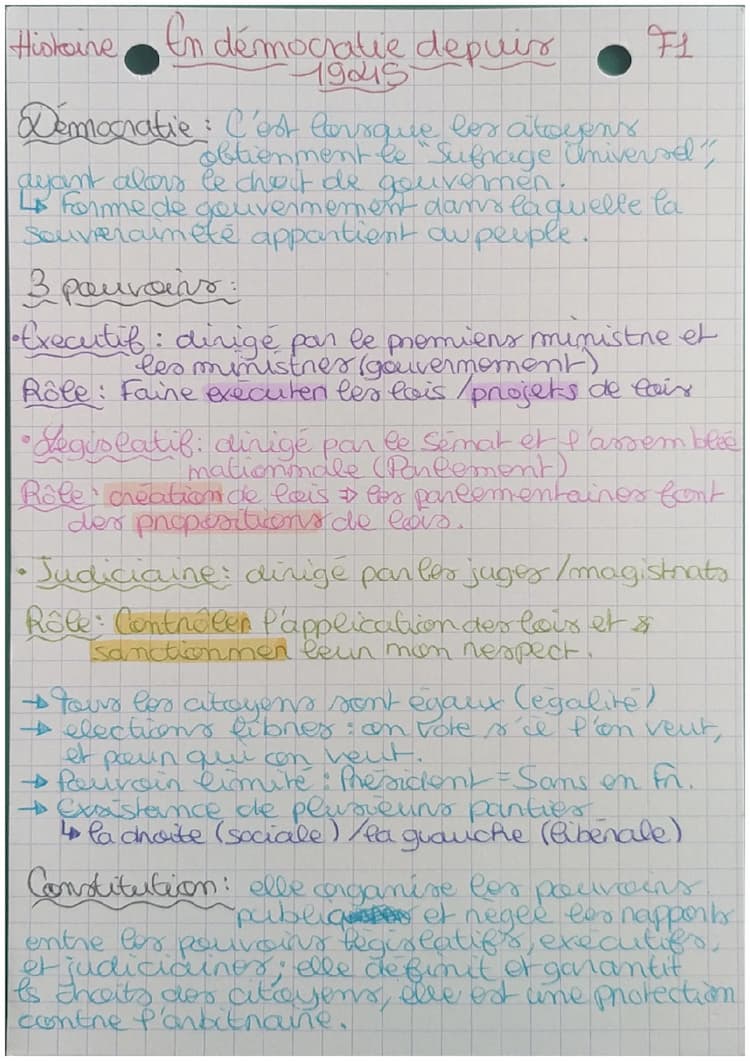 Histoire En démocratie depuis F1
1945
Démocratie : C'est lorsque les citoyens
obtiennent le "Sufrage Universel",
ayant alors le droit de gouverner.
↳ Forme de gouvernement dans laquelle la
souveraineté appartient au peuple.
3 pouvoirs :
•Executif : dirigé par le premiers ministre et
les ministres (gouvernement)
Rôle : Faire exécuter les lois / projets de lois
•Législatif : dirigé par le Sénat et l'assemblée
nationnale (Parlement)
Rôle : création de lois ⇒ les parlementaires font
des propositions de lois.
• Judiciaire : dirigé par les juges / magistrats
Rôle : Contrôler l'application des lois et
sanctionner leur non respect.
→ tous les citoyens sont égaux (égalité)
→ elections libres : on vote s'il l'on veut,
et pour qui on veut.
→ Pouvoir limité : Président = 5ans en Fr.
→ Existance de plusieurs parties
↳ la droite (sociale) / la guauche (libérale)
Constitution : elle organise les pouvoirs
public et règle les rapports
entre les pouvoirs législatifs, executifs,
et judiciaires ; elle définit et garantit
ls droits des citoyens, elle est une protection
contre l'arbitraire.